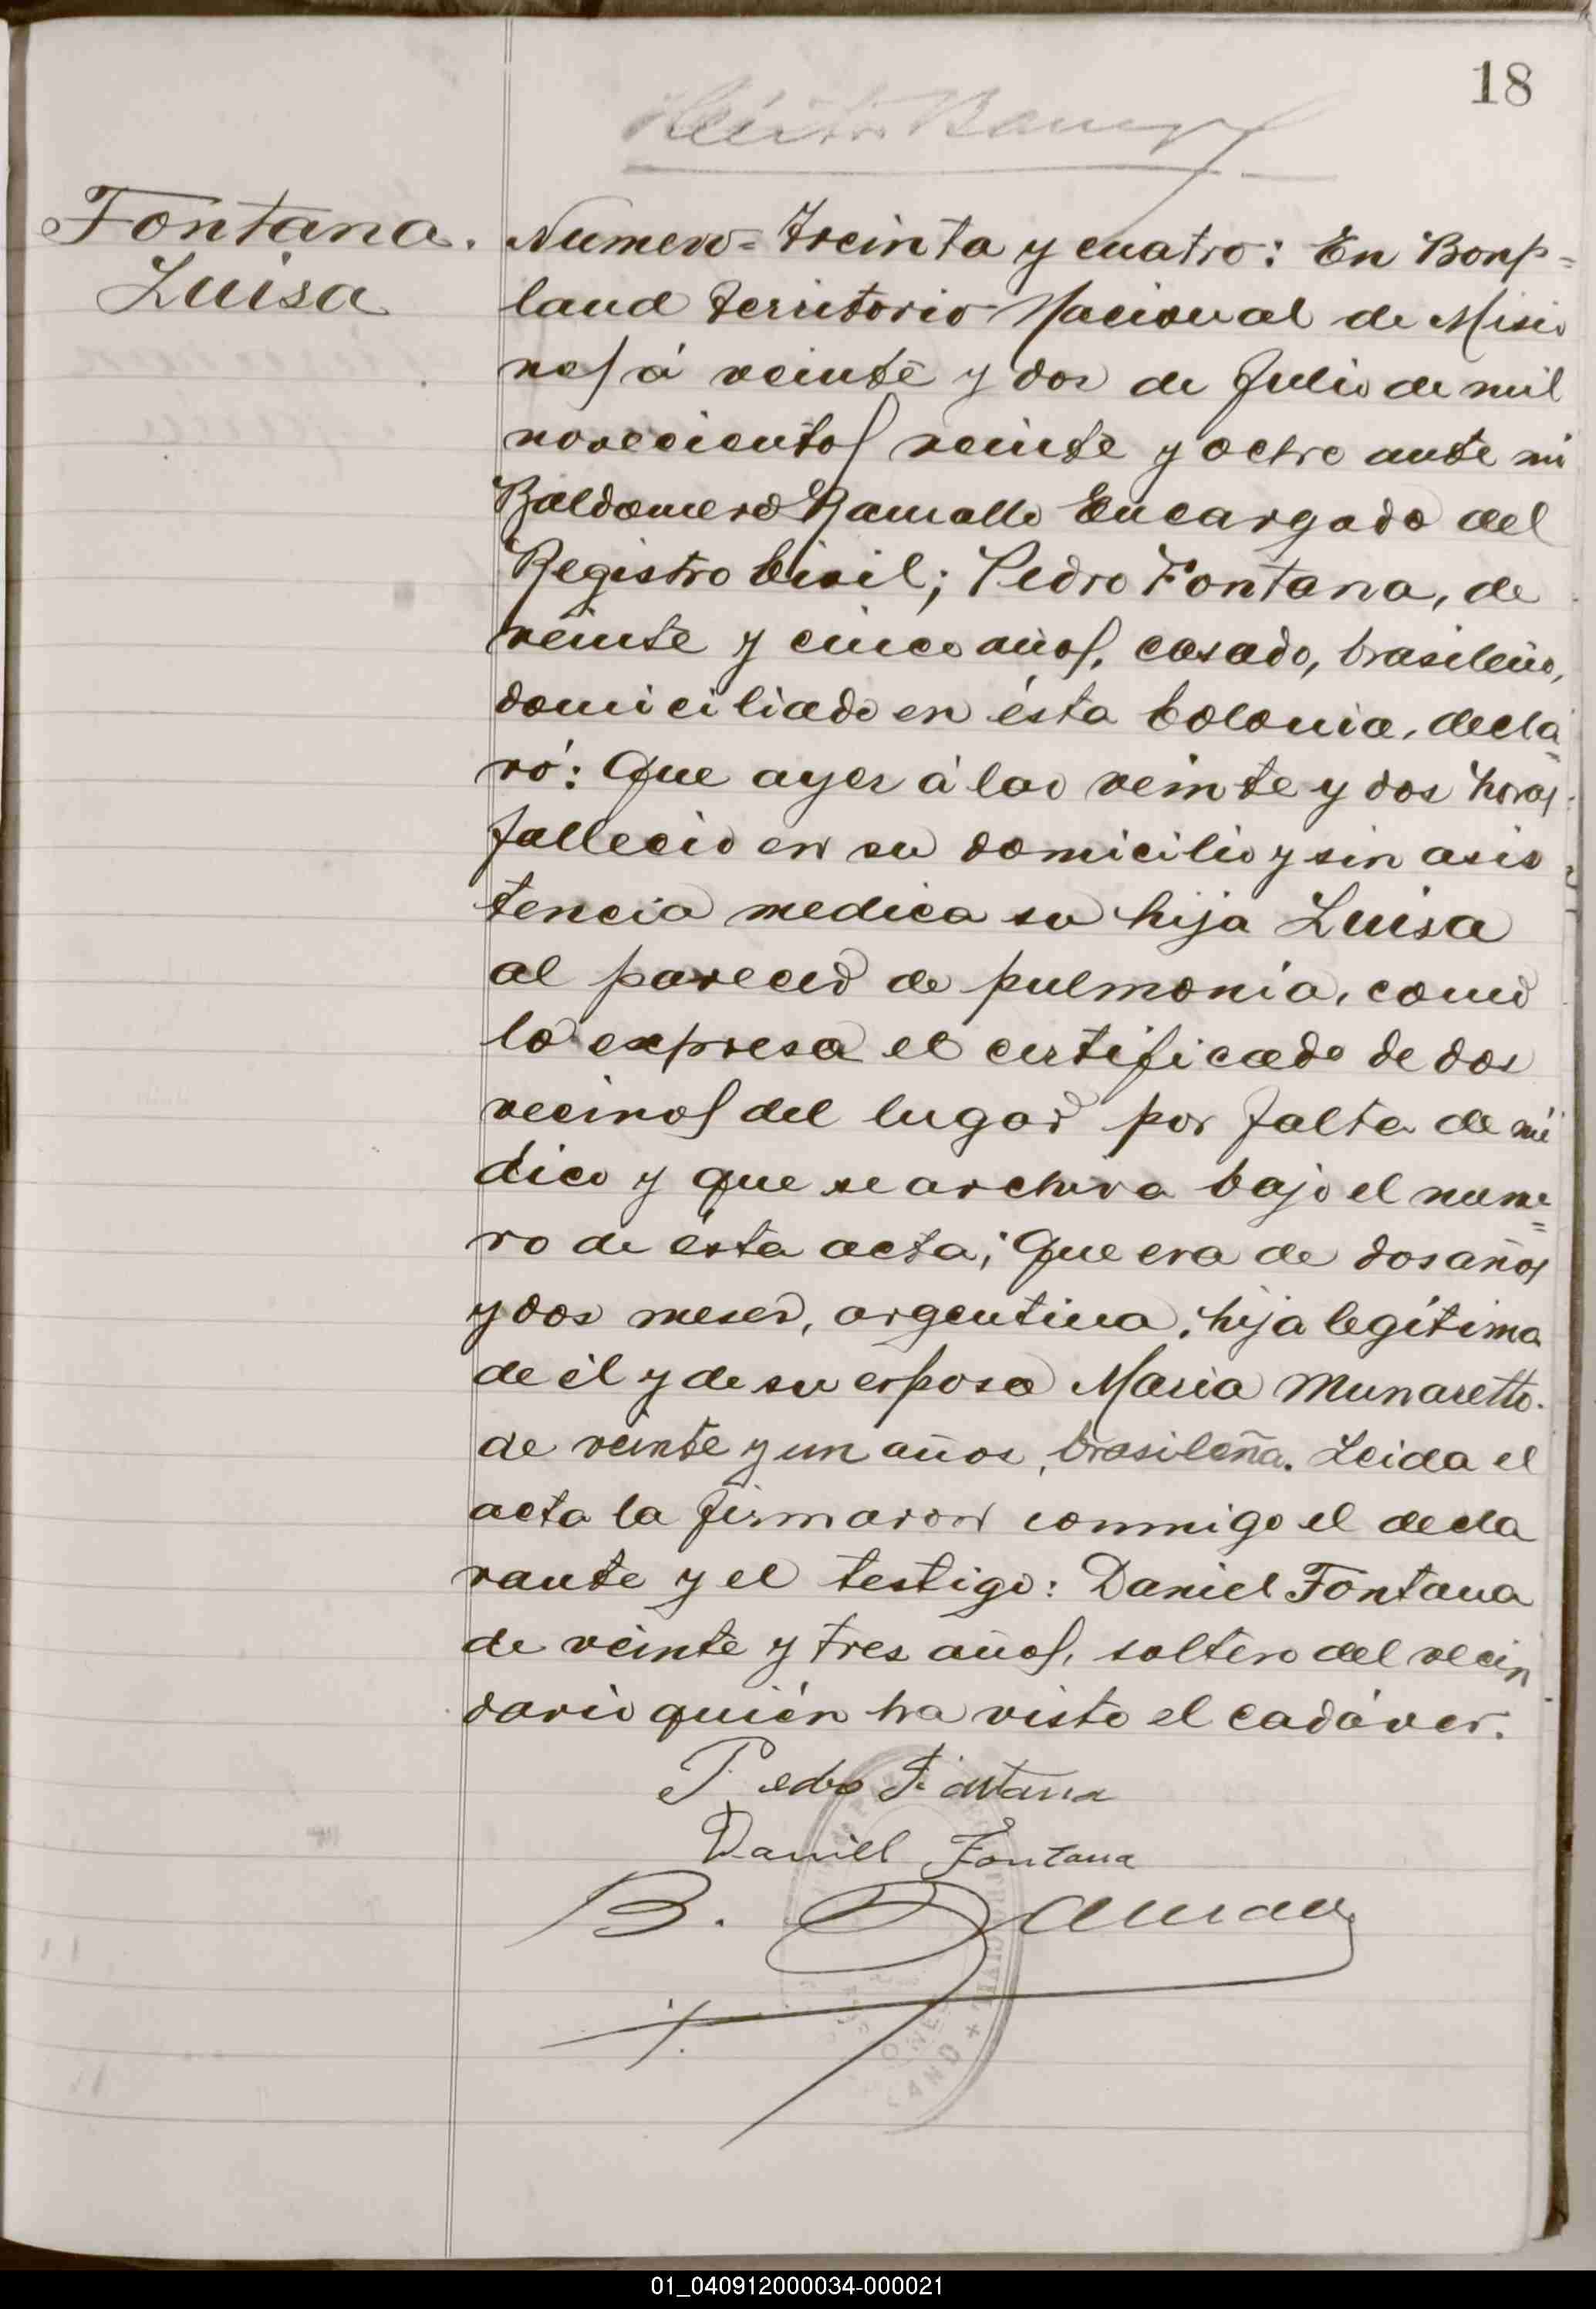 18
Fontana.
Luisa
Numero = Treinta y cuatro: En Bonp=
land Territorio Nacional de Misio
nes á veinte y dos de Julio de mil
novecientos veinte y ocho ante mi
Baldomero Ramallo Encargado del
Registro Civil; Pedro Fontana, de
veinte y cinco años, casado, brasileño,
domiciliado en ésta Colonia, decla=
ró: Que ayer á las veinte y dos horas
fallecio en su domicilio y sin asis
tencia medica su hija Luisa
al parecer de pulmonia, como
lo expresa el certificado de dos
vecinos del lugar por falta de mé
dico y que se archiva bajo el nume=
ro de ésta acta; Que era de dos años
y dos meses, argentina, hija legítima
de él y de su esposa Maria Munaretto.
de veinte y un años, brasileña. Leida el
acta la firmaron conmigo el decla
rante y el testigo: Daniel Fontana
de veinte y tres años, soltero del vecin
dario quién ha visto el cadáver.
Pedro Fontana
Daniel Fontana
B.
01_040912000034-000021